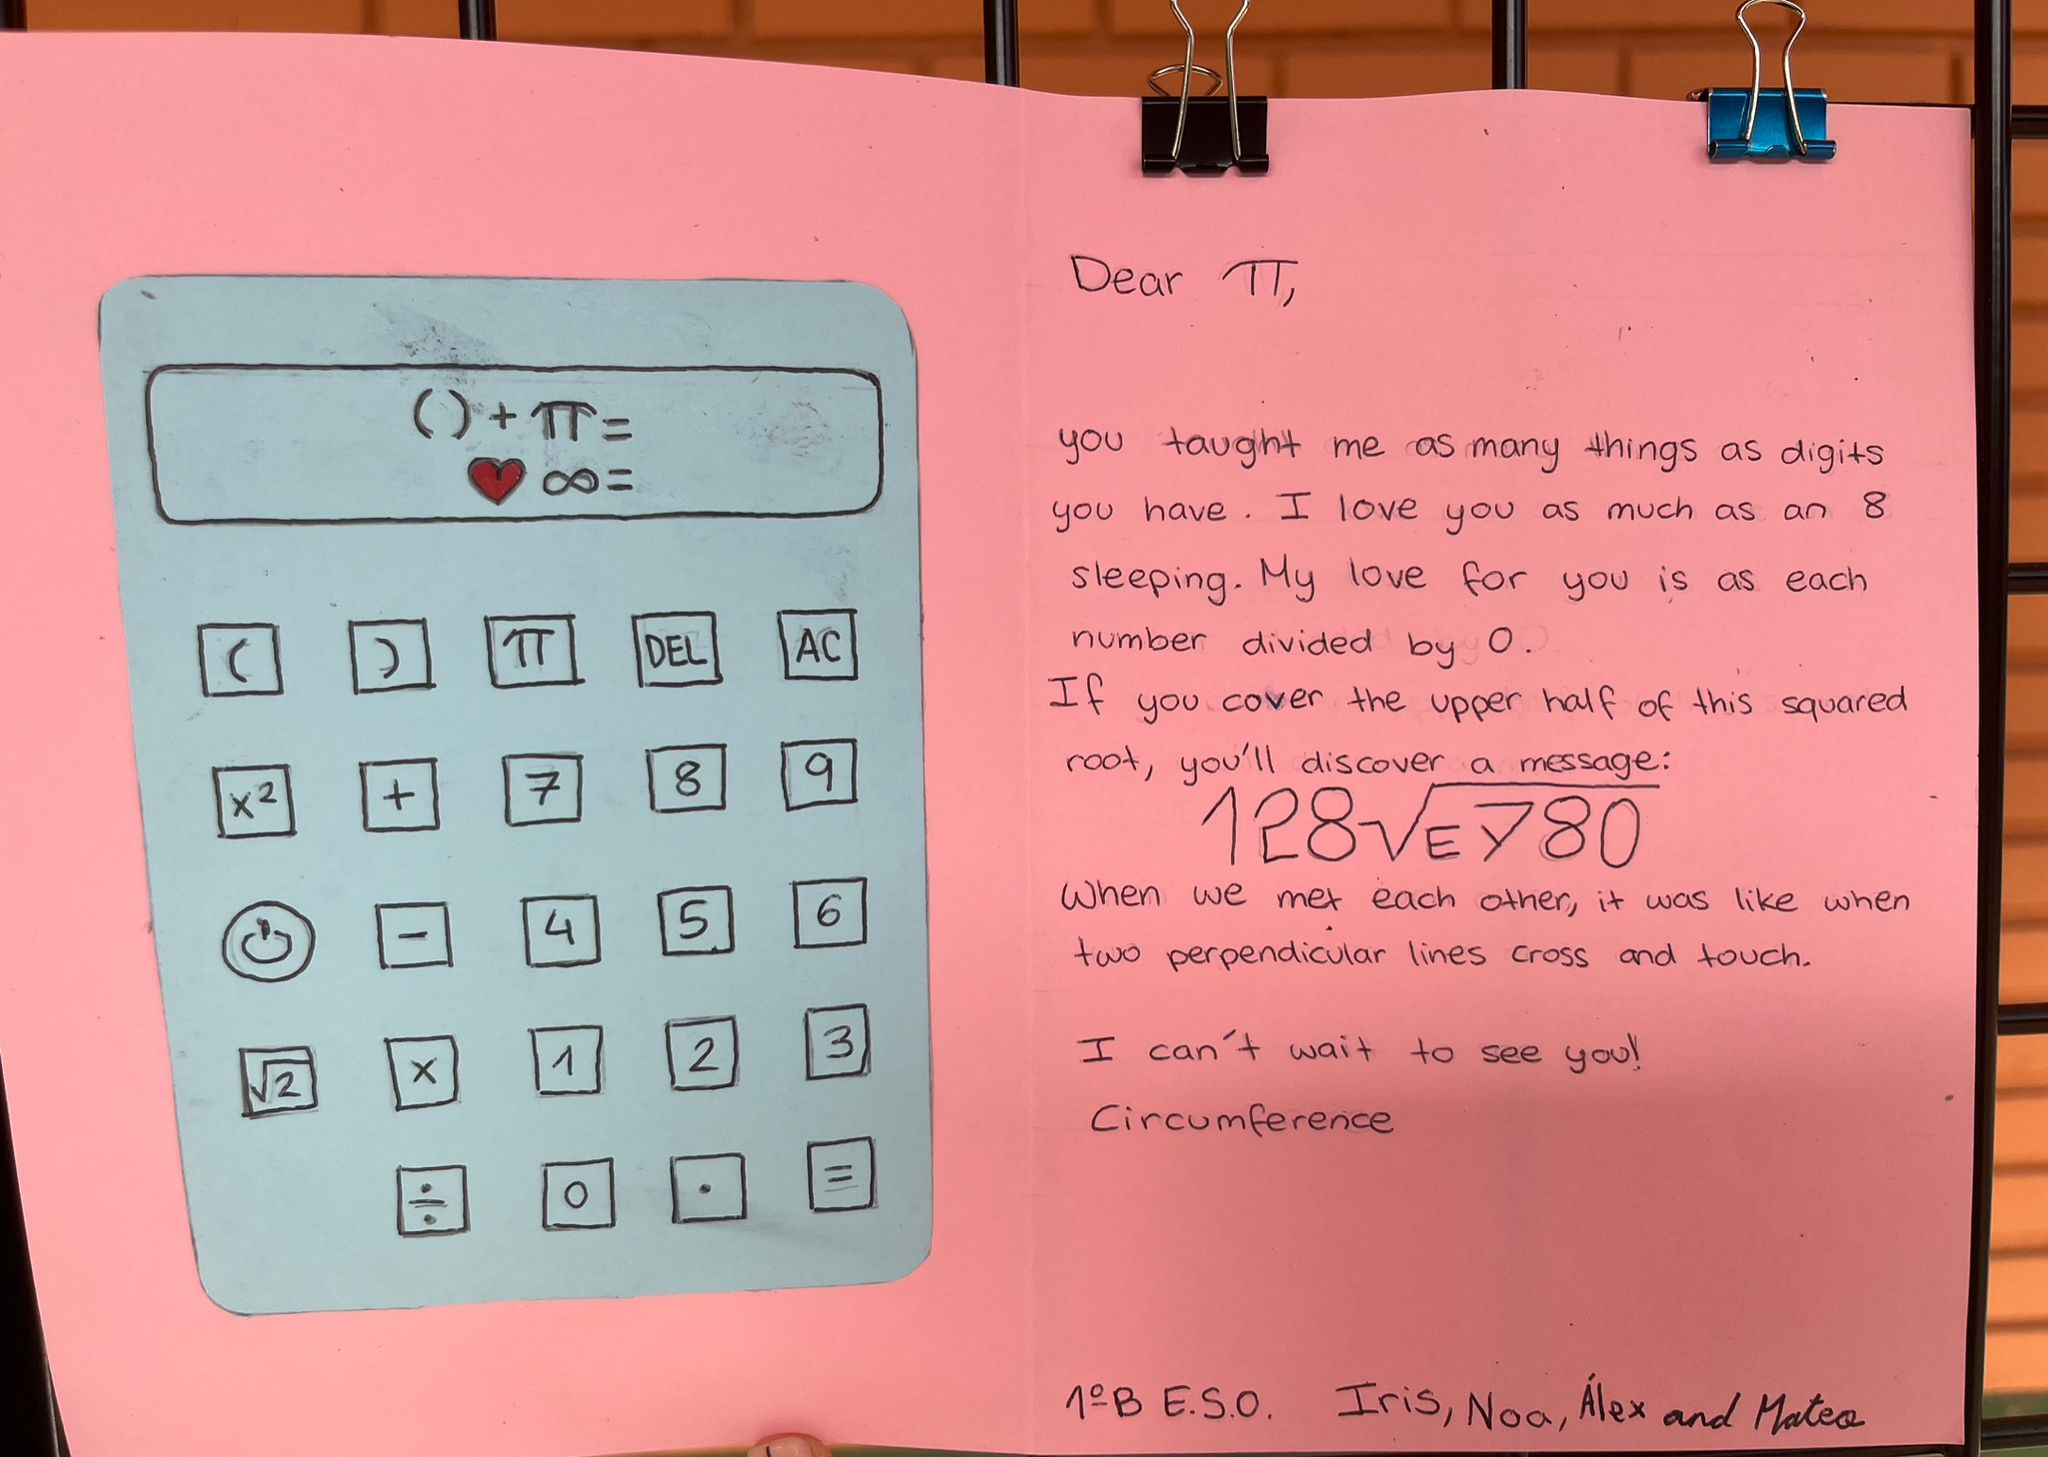 ( ) + π =
♥ ∞ =
( ) π DEL AC
x² + 7 8 9
- 4 5 6
√2 x 1 2 3
÷ 0 . =
Dear π,
you taught me as many things as digits
you have. I love you as much as an 8
sleeping. My love for you is as each
number divided by 0.
If you cover the upper half of this squared
root, you'll discover a message:
128√EY80
When we met each other, it was like when
two perpendicular lines cross and touch.
I can't wait to see you!
Circumference
1ºB E.S.O. Iris, Noa, Álex and Mateo